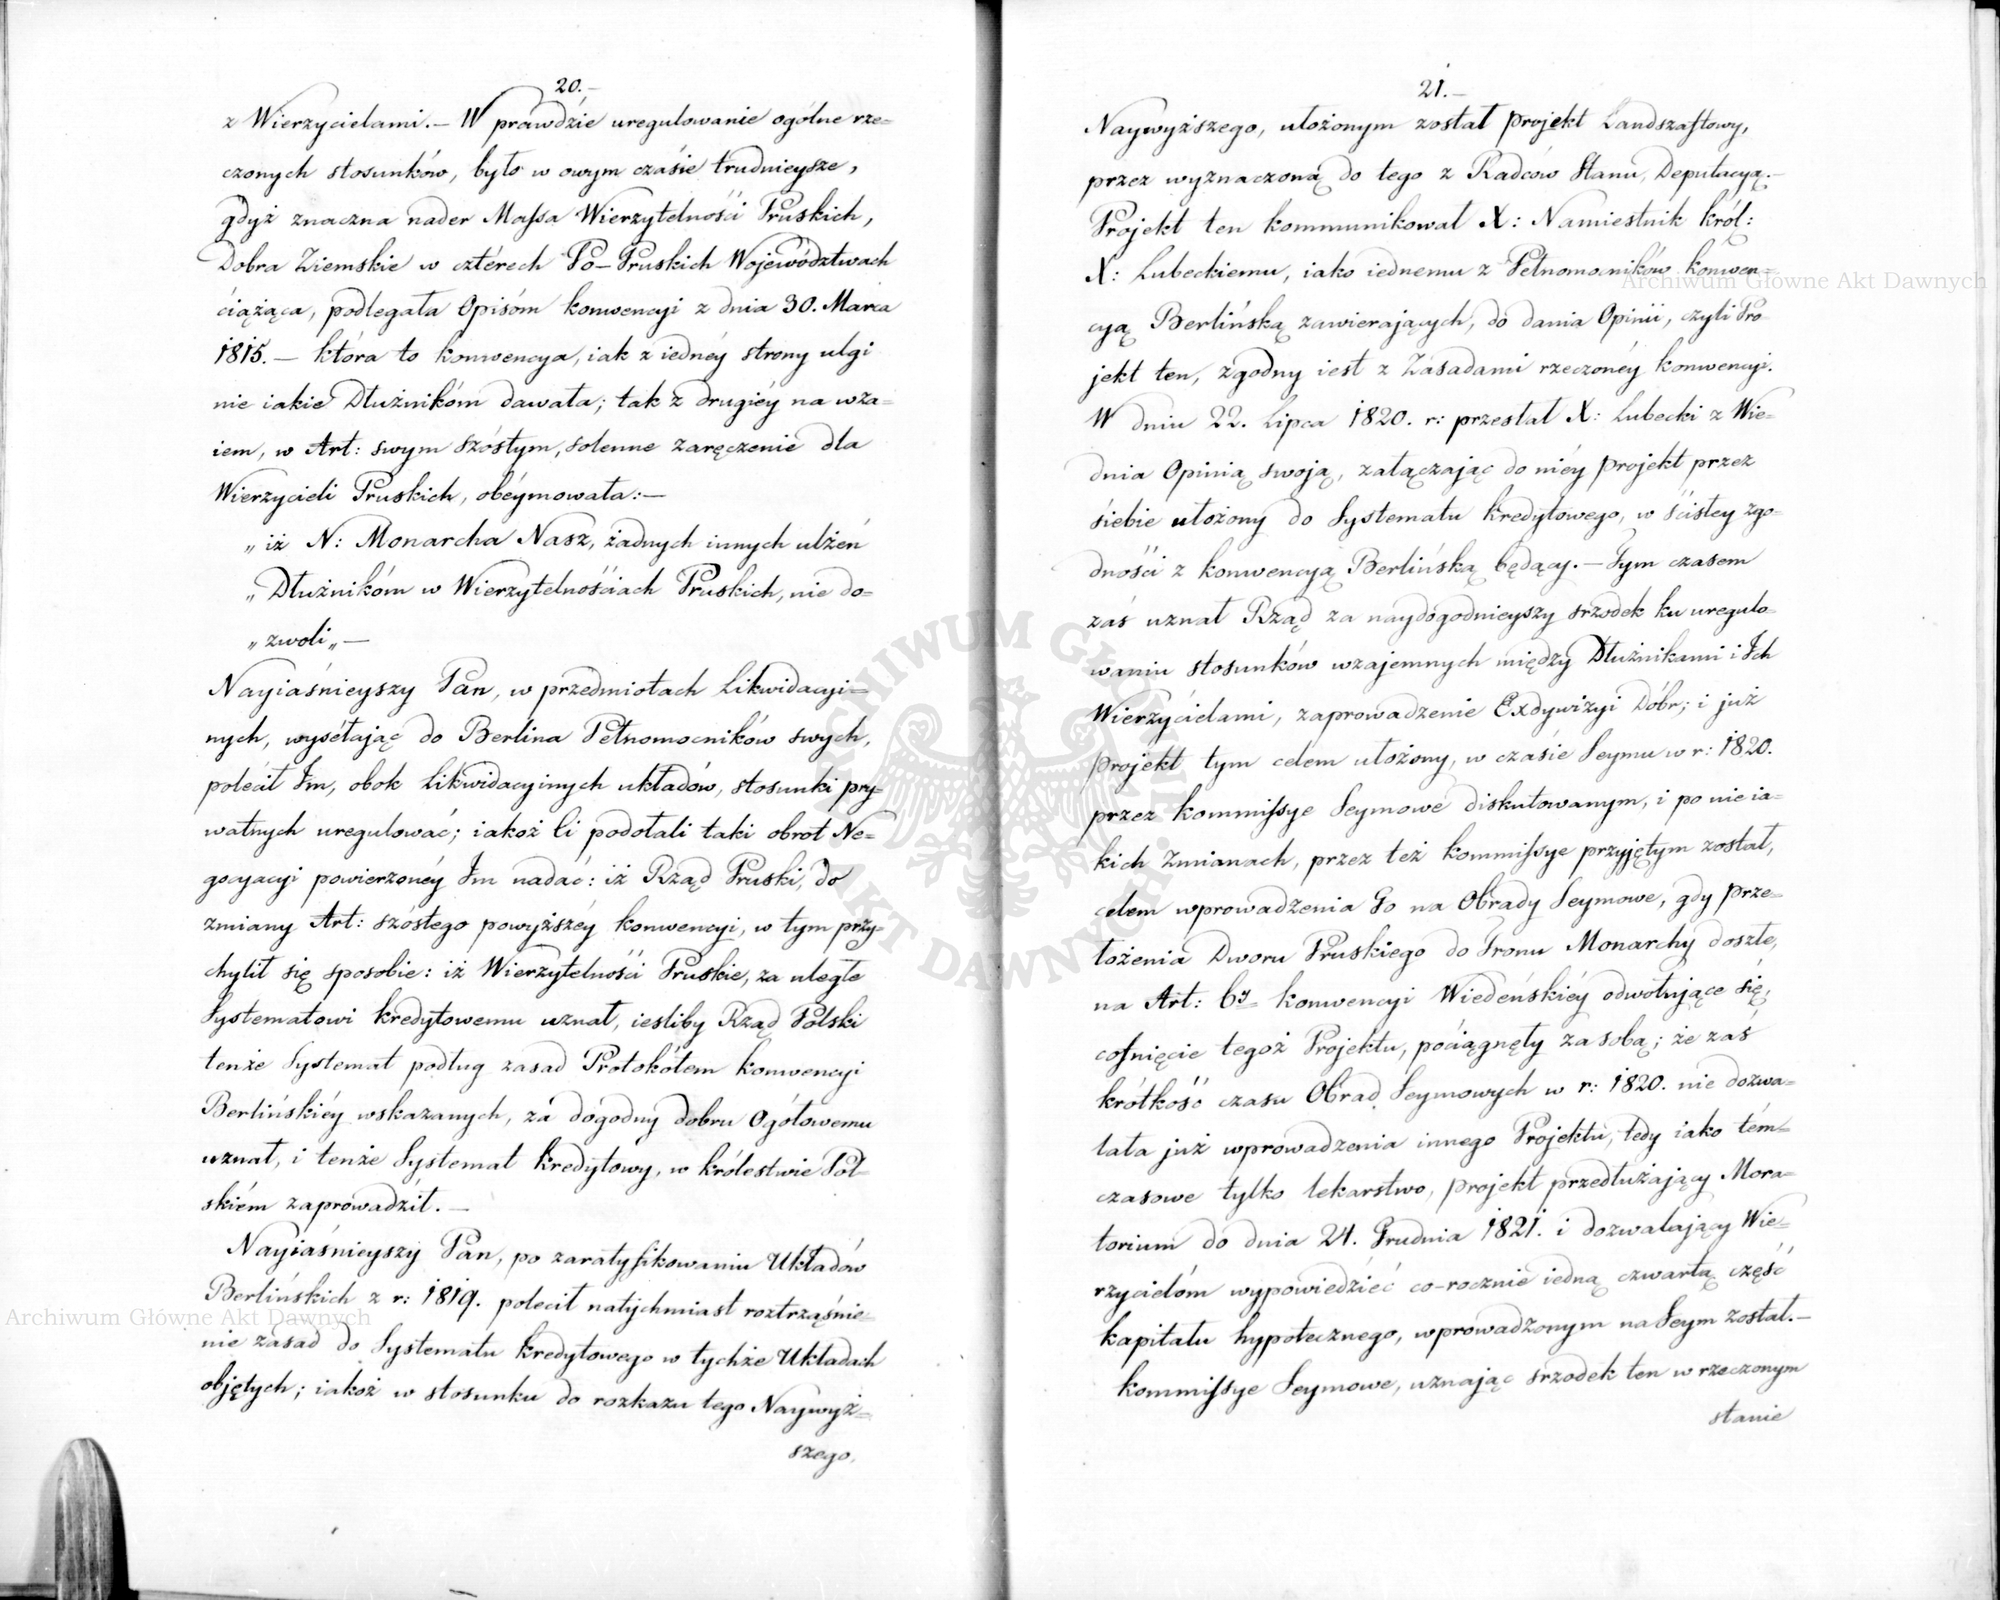 20.—
z Wierzycielami.— W prawdzie uregulowanie ogólne rze=
czonych stosunków, było w owym czásie trudnieysze,
gdyż znaczna nader Massa Wierzytelnośći Pruskich,
Dobra Ziemskie w cztérech Po-Pruskich Województwach
ćiążąca, podlegała Opisóm konwencyi z dnia 30. Marca
1815.— która to konwencya, iak z iednéy strony ulgi
nie iakie Dłużnikóm dawała; tak z drugiéy na wza=
iem, w Art: swym szóstym, solenne zaręczenie dla
Wierzycieli Pruskich, obéymowała:—
„ iż N: Monarcha Nasz, żadnych innych ulżeń
„ Dłużnikóm w Wierzytelnośćiach Pruskich, nie do=
„ zwoli „—
Nayiaśnieyszy Pan, w przedmiotach Likwidacyi=
nych, wyséłając do Berlina Pełnomocników swych,
polećił Im, obok Likwidacyinych układów, stosunki pry=
watnych uregulować; iakoż Ci podołali taki obrot Ne=
gocyacyi powierzonéy Im nadać: iż Rząd Pruski, do
zmiany Art: szóstego powyższéy konwencyi, w tym przy=
chylił się sposobie: iż Wierzytelnośći Pruskie, za uległe
Systematowi kredytowemu uznał, iesliby Rząd Polski
tenże Systemat podług zasad Protokółem konwencyi
Berlińskiéy wskazanych, za dogodny dobru Ogółowemu
uznał, i tenże Systemat kredytowy, w królestwie Pol=
skiém zaprowadził.—
Nayiaśnieyszy Pan, po zaratyfikowaniu Układów
Berlińskich z r: 1819. polecił natychmiast roztrząśnie=
nie zasad do Systematu kredytowego w tychże Układach
objętych; iakoż w stosunku do rozkazu tego Naywyż=
szego,
21.—
Naywyższego, ułożonym został projekt Landszaftowy,
przez wyznaczoną do tego z Radców Stanu, Deputacyą.—
Projekt ten kommunikował X: Namiestnik król:
X: Lubeckiemu, iako iednemu z Pełnomocników konwen=
cyą Berlińską zawierających, do dania Opinii, czyli Pro=
jekt ten, zgodny iest z Zasadami rzeczonéy konwencyi.
W dniu 22. Lipca 1820. r: przesłał X: Lubecki z Wie=
dnia Opinią swoją, załączając do niéy projekt przez
siebie ułożony do Systematu kredytowego, w śćisłey zgo=
dnośći z konwencyą Berlińską będący.— Tym czasem
zaś uznał Rząd za naydogodnieyszy srzodek ku uregulo=
waniu stosunków wzajemnych między Dłużnikami i Ich
Wierzyćielami, zaprowadzenie Exdywizyi Dóbr; i już
projekt tym celem ułożony, w czásie Seymu w r: 1820.
przez kommissye Seymowe diskutowanym, i po nie ia=
kich Zmianach, przez też kommissye przyjętym został,
celem wprowadzenia Go na Obrady Seymowe, gdy prze=
łożenia Dworu Pruskiego do Tronu Monarchy doszłe,
na Art: 6y konwencyi Wiedeńskiéy odwołujące się,
cofnięcie tegoż Projektu, poćiągnęły za sobą; że zaś
krótkość czasu Obrad Seymowych w r: 1820. nie dozwa=
lała już wprowadzenia innego Projektu, tedy iako tém=
czasowe tylko lekarstwo, projekt przedłużający Mora=
torium do dnia 24. Grudnia 1821. i dozwalający Wie=
rzycielóm wypowiedzieć co-rocznie iedną czwartą część
kapitału hypotecznego, wprowadzonym na Seym został.—
kommissye Seymowe, uznając srzodek ten w rzeczonym
stanie
Archiwum Główne Akt Dawnych
Archiwum Główne Akt Dawnych
ARCHIWUM GŁÓWNE AKT DAWNYCH